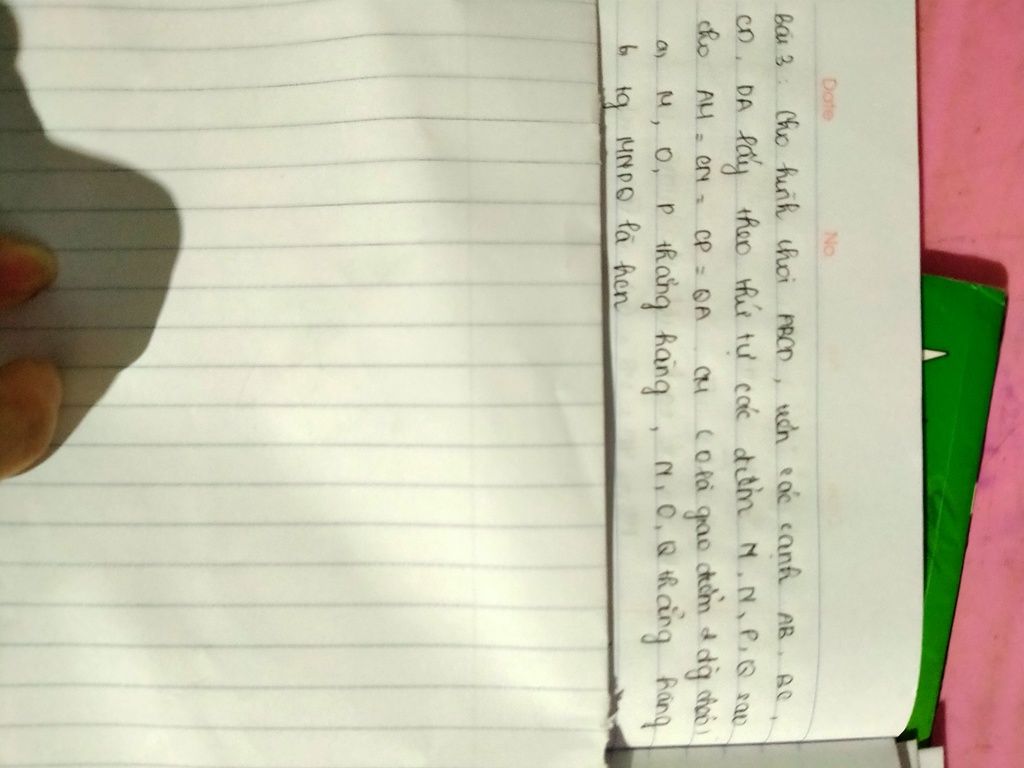 Date No
Bài 3: Cho hình thoi ABCD, trên các cạnh AB, BC,
CD, DA lấy theo thứ tự các điểm M, N, P, Q sao
cho AM = CN = CP = QA. CM (O là giao điểm 2 đg chéo)
a) M, O, P thẳng hàng, N, O, Q thẳng hàng
b tg MNPQ là hcn